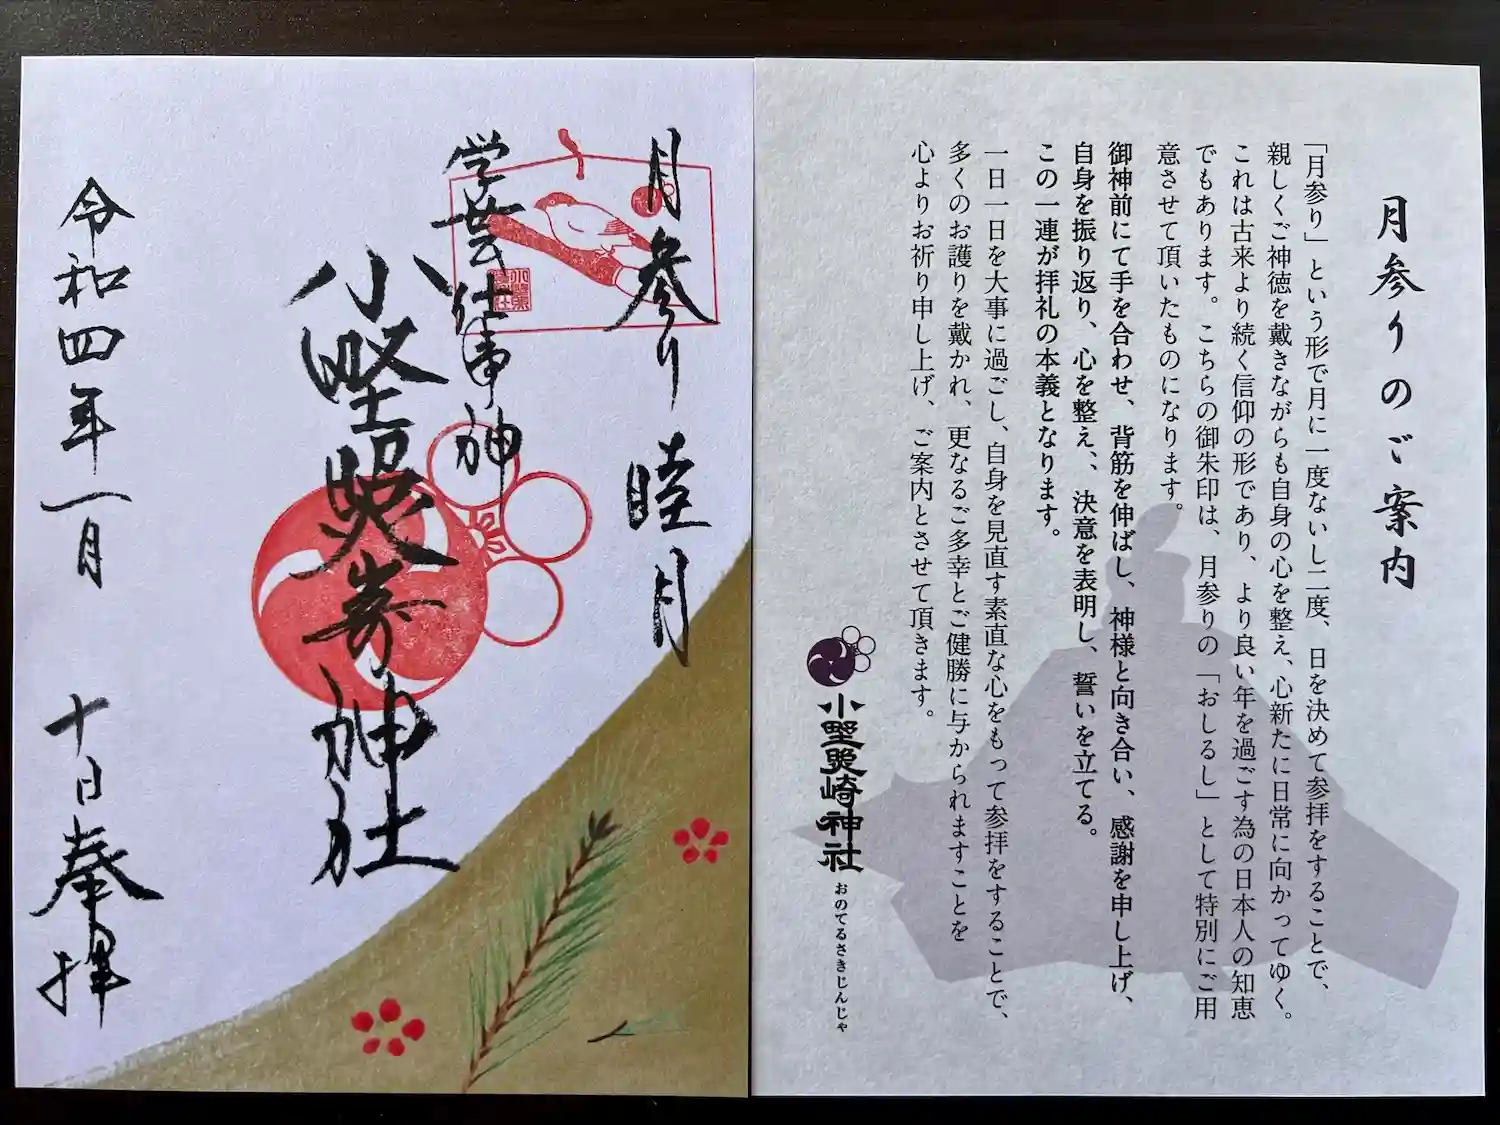 月参り 睦月
学芸仕事神
小野照崎神社
令和四年一月 十日奉拝
月参りのご案内
「月参り」という形で月に一度ないし二度、日を決めて参拝をすることで、
親しくご神徳を戴きながらも自身の心を整え、心新たに日常に向かってゆく。
これは古来より続く信仰の形であり、より良い年を過ごす為の日本人の知恵
でもあります。こちらの御朱印は、月参りの「おしるし」として特別にご用
意させて頂いたものになります。
御神前にて手を合わせ、背筋を伸ばし、神様と向き合い、感謝を申し上げ、
自身を振り返り、心を整え、、決意を表明し、誓いを立てる。
この一連が拝礼の本義となります。
一日一日を大事に過ごし、自身を見直す素直な心をもって参拝をすることで、
多くのお護りを戴かれ、更なるご多幸とご健勝に与かられますことを
心よりお祈り申し上げ、ご案内とさせて頂きます。
小野照崎神社
おのてるさきじんじゃ